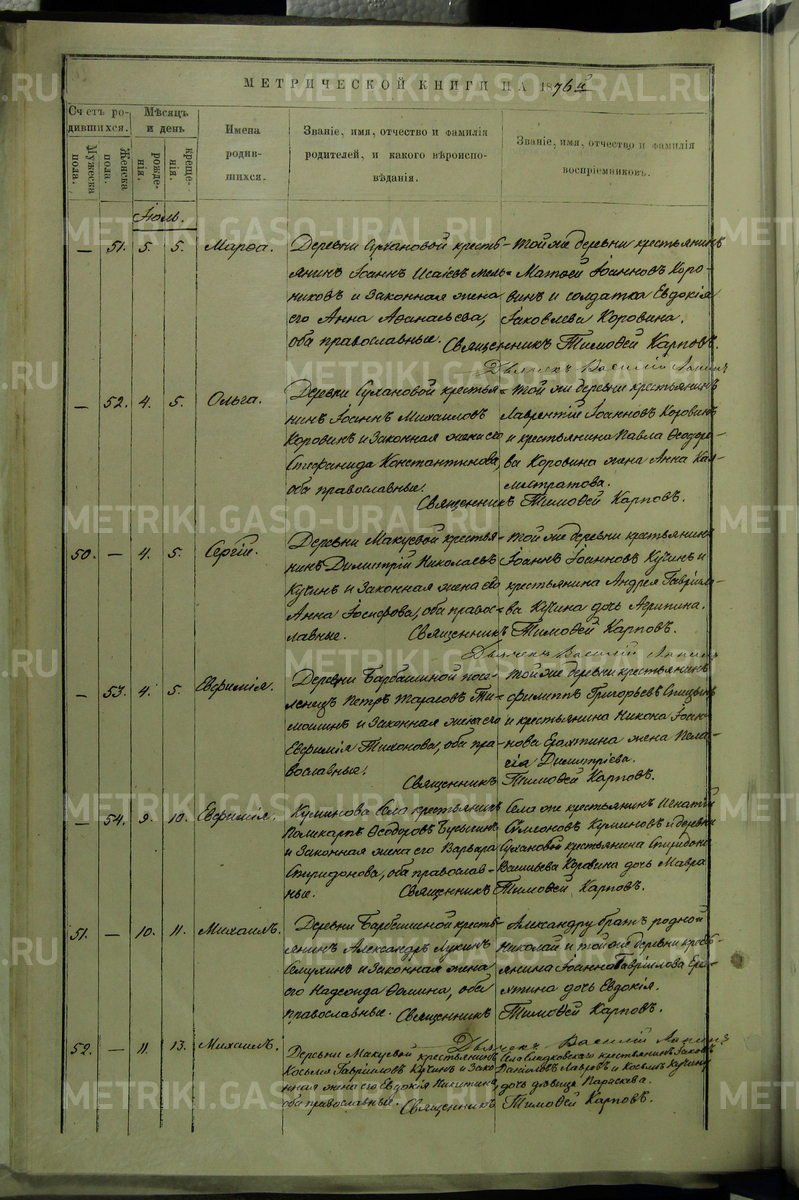 МЕТРИЧЕСКОЙ КНИГИ НА 1876й
Счетъ ро-
дившихся.
Мужеска
пола.
Женска
пола.
Мѣсяцъ
и день
рожде-
нія.
креще-
нія.
Имена
родив-
шихся.
Званіе, имя, отчество и фамилія
родителей, и какого вѣроиспо-
вѣданія.
Званіе, имя, отчество и фамилія
воспріемниковъ.
Іюль.
— 51. 5. 5. Марѳа.
Деревни Сухановой кресть-
янинъ Іоаннъ Исаіевъ Мель-
никовъ и законная жена
его Анна Аѳанасьева,
оба православные.
Той же деревни крестьянинъ
Матѳей Іоанновъ Коро-
винъ и солдатка Евдокія
Іаковлева Коровина.
Священникъ Тимоѳей Карповъ.
Дьячекъ Василій
— 52. 4. 5. Ольга.
Деревни Сухановой крестья-
нинъ Іоаннъ Михаиловъ
Коровинъ и законная жена его
Стефанида Константинова,
оба православные.
Той же деревни крестьянинъ
Лаврентій Іоанновъ Коровинъ
и крестьянина Павла Ѳеодоро-
ва Коровина жена Анна Кал-
листратова.
Священникъ Тимоѳей Карповъ.
50. — 4. 5. Сергій.
Деревни Макуевой крестья-
нинъ Димитрій Николаевъ
Кучинъ и законная жена его
Анна Іосифова, оба правос-
лавные.
Той же деревни крестьянинъ
Іоаннъ Іоанновъ Кучинъ и
крестьянина Андрея Гаврило-
ва Кучина дочь Агрипина.
Священникъ Тимоѳей Карповъ.
Дьячекъ Василій
— 53. 4. 5. Евфимія.
Деревни Барбашиной посе-
ленецъ Петръ Тарасовъ Ти-
и законная жена его
Евфимія Тихонова, оба пра-
вославные.
Той же деревни крестьянинъ
Филиппъ Григорьевъ Спицынъ
и крестьянина Никона Іоан-
нова жена Пела-
гія Димитріева.
Священникъ Тимоѳей Карповъ.
— 54. 9. 10. Евфимія.
Куминова села крестьянинъ
Поликарпъ Ѳеодоровъ
и законная жена его Варвара
Спиридонова, оба православ-
ные.
Села же крестьянинъ Игнатій
Симеоновъ Куминовъ и деревни
Сухановой крестьянина Спиридона
Васильева Коровина дочь Мавра
Священникъ Тимоѳей Карповъ.
51. — 10. 11. Михаилъ.
Деревни Барбашиной кресть-
янинъ Александръ Лукинъ
и законная жена
его Надежда Ѳомина, оба
православные.
Александру братъ родной
Николай и той же деревни кресть-
янина Іоанна Гавріилова Ера-
дочь Евдокія.
Священникъ Тимоѳей Карповъ.
Дьячекъ Василій
52. — 11. 13. Михаилъ.
Деревни Макуевой крестьянинъ
Косьма Гавріиловъ Кучинъ и зако-
нная жена его Евдокія Никитина,
оба православные.
Села крестьянинъ Іаковъ
Даніиловъ Лавровъ и Косьмы Кучина
дочь дѣвица Параскева.
Священникъ Тимоѳей Карповъ.
METRIKI.GASO-URAL.RU